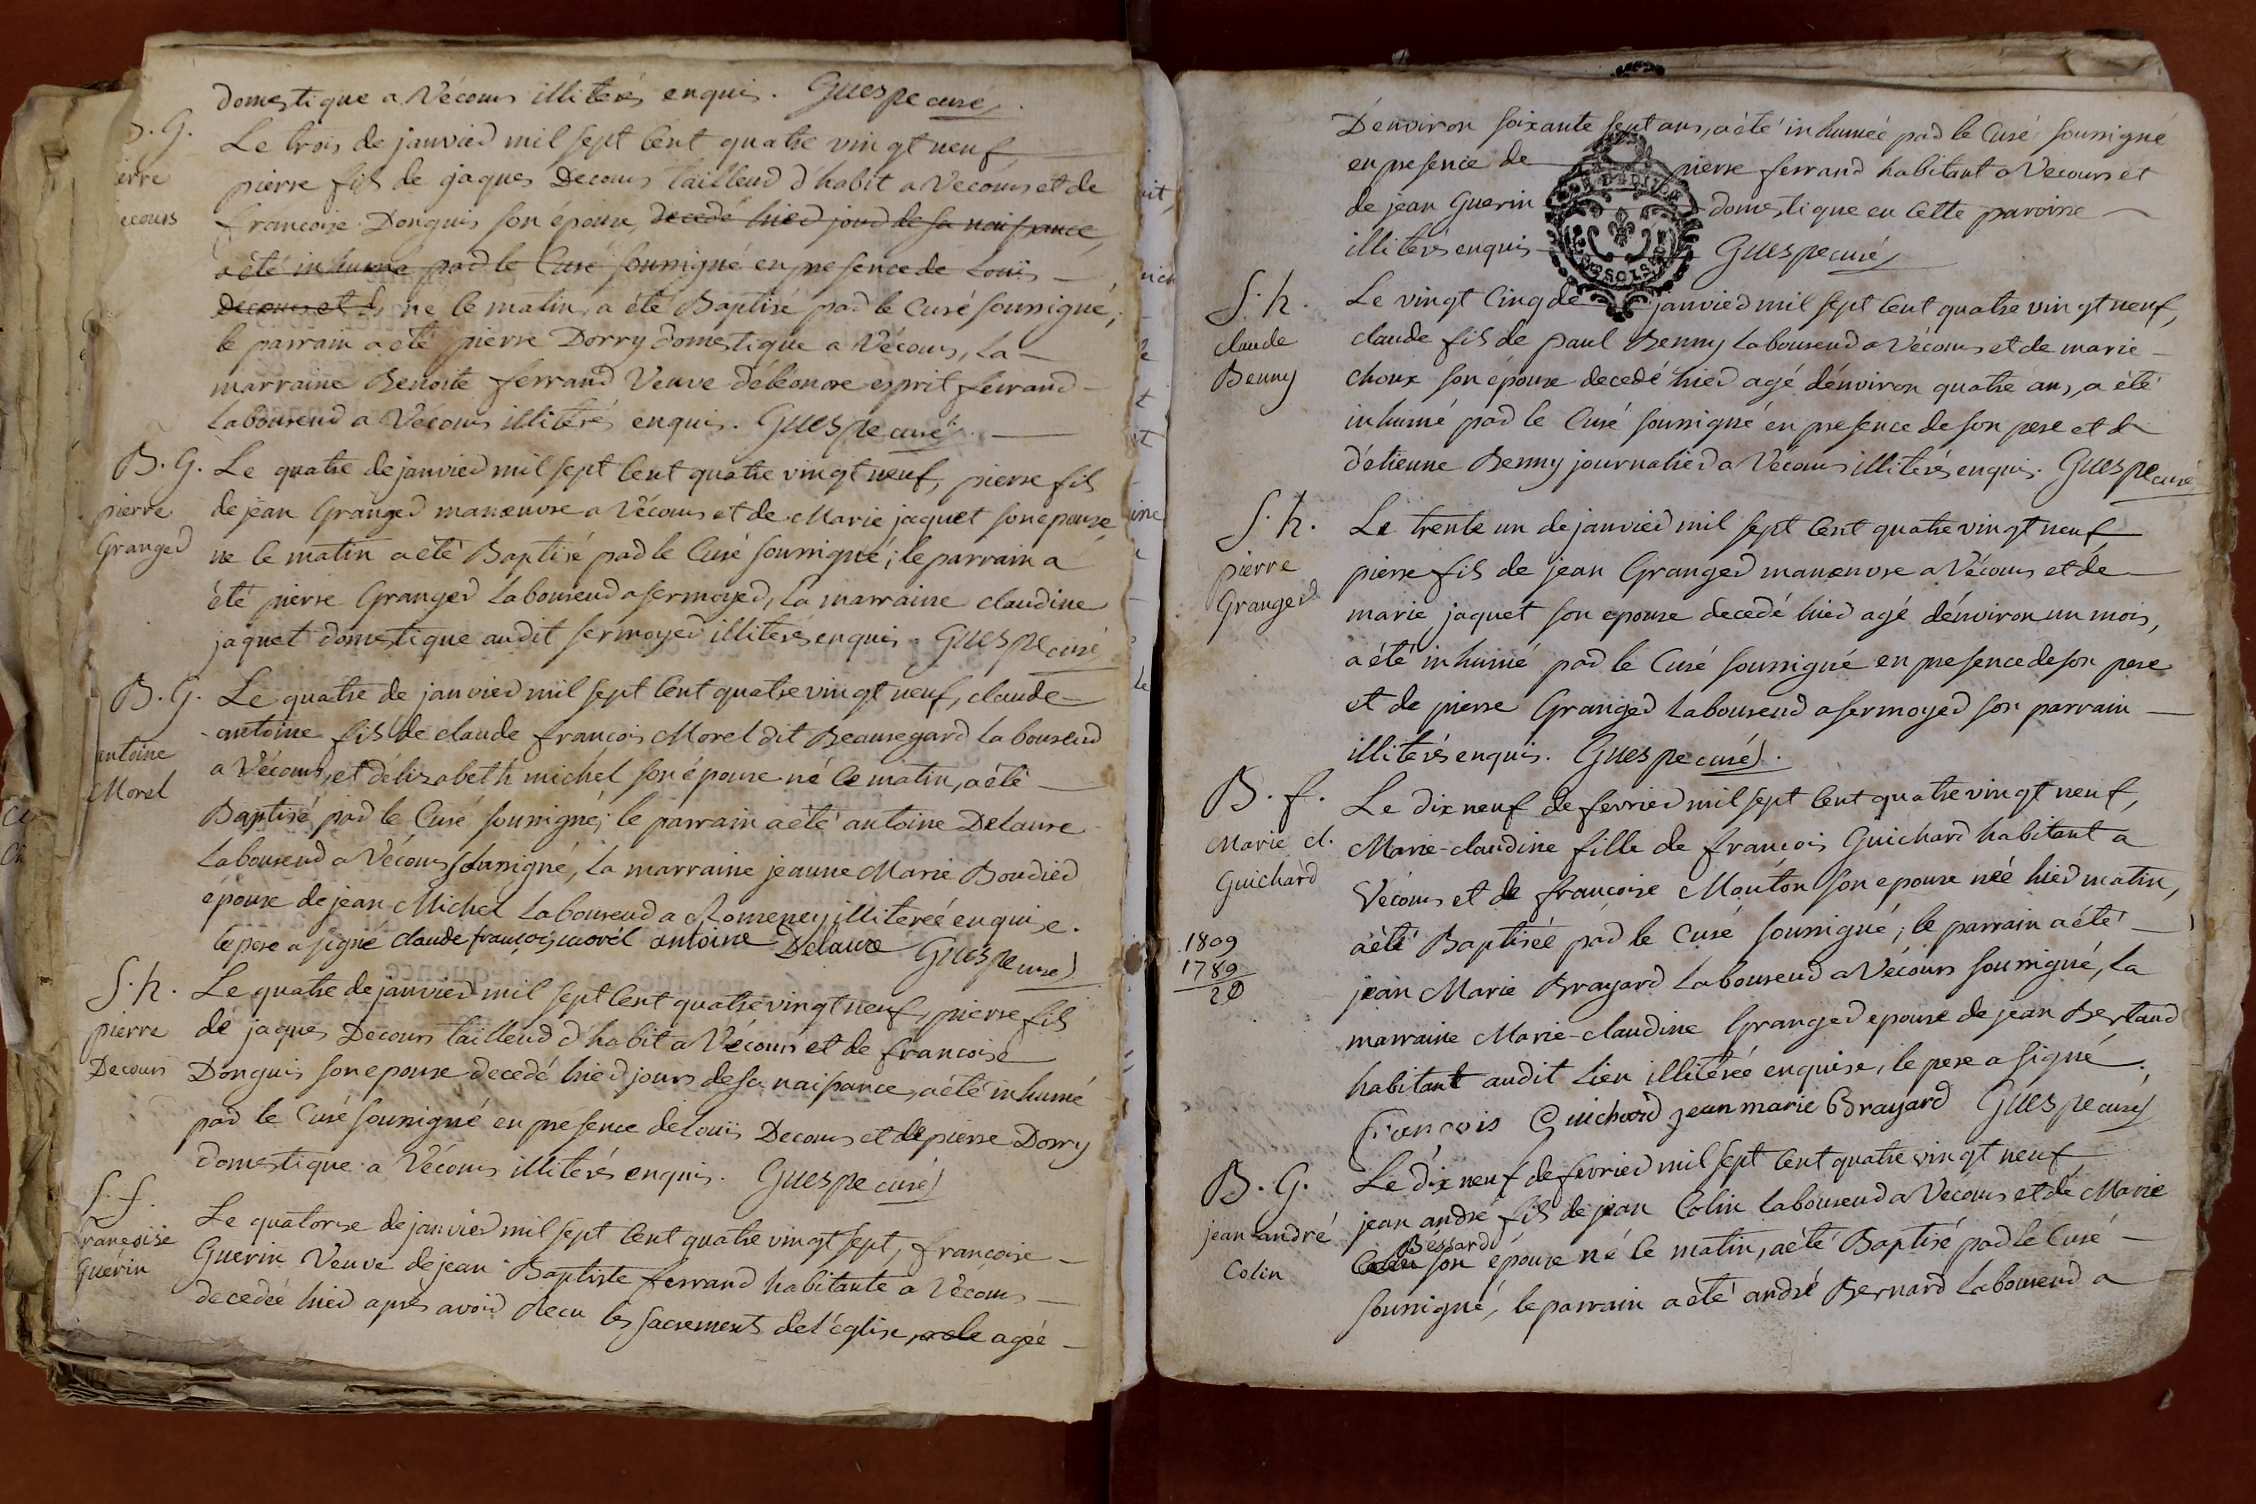 domestique a Vécours illiterés enquis. Guespe curé
B. G.
Le trois de janvier mil sept cent quatre vingt neuf
pierre
pierre fils de jaques Decours tailleur d'habit a Vecours et de
Decours
francoise Donguis son épouse, decedé hier jour de sa naissance,
a été inhumé par le Curé soussigné en presence de Louis
decours et d, né le matin, a été Baptisé par le Curé soussigné,
le parrain a été pierre Dorry domestique a Vécours, la
marraine Benoite ferrand Veuve de leonore esprit ferrand
laboureur a Vecours illiterés enquis. Guespe curé
B. G.
Le quatre de janvier mil sept cent quatre vingt neuf, pierre fils
pierre
de jean Granger manœuvre a Vécours et de Marie jaquet son epouse
Granger
né le matin a été Baptisé par le Curé soussigné; le parrain a
été pierre Granger laboureur a sermoyer, la marraine claudine
jaquet domestique audit sermoyer illiterés enquis. Guespe curé
B. G.
Le quatre de janvier mil sept cent quatre vingt neuf, claude
antoine fils de claude francois Morel dit Beauregard laboureur
antoine
a Vécours, et d'elizabeth michel son épouse né le matin, a été
Morel
Baptisé par le Curé soussigné; le parrain a été antoine Delaure
laboureur a Vécours soussigné, la marraine jeanne Marie Boudier
épouse de jean Michel laboureur a Romeney illitereé enquise.
le pere a signé claude françois morél antoine Delaure Guespe curé
S. h.
Le quatre de janvier mil sept cent quatre vingt neuf, pierre fils
pierre
de jaques Decours tailleur d'habit a Vécours et de francoise
Decours
Donguis son epouse decedé hier jours de sa naissance, a été inhumé
par le Curé soussigné en presence de Louis Decours et de pierre Dorry
domestique a Vécours illiterés enquis. Guespe curé
S. f.
Le quatorse de janvier mil sept cent quatre vingt sept, francoise
francoise
Guerin Veuve de jean Baptiste ferrand habitante a Vécours
Guérin
decedée hier apres avoir recu les sacrements de l'église, agée
D'environ soixante sept ans, a été inhumée par le Curé soussigné
en presence de pierre ferrand habitant a Vecours et
de jean Guerin domestique en cette paroisse
illiterés enquis Guespe curé
S. h.
Le vingt cinq de janvier mil sept cent quatre vingt neuf,
claude
claude fils de paul Benny laboureur a Vécours et de marie
Benny
choux son épouse decedé hier agé d'environ quatre ans, a été
inhumé par le Curé soussigné en presence de son pere et de
d'etienne Benny journalier a Vécours illiterés enquis. Guespe curé
S. h.
Le trente un de janvier mil sept cent quatre vingt neuf
pierre
pierre fils de jean Granger manœuvre a Vécours et de
Granger
marie jaquet son epouse decedé hier agé d'environ un mois,
a été inhumé par le Curé soussigné en presence de son pere
et de pierre Granger laboureur a sermoyer son parrain
illiterés enquis. Guespe curé.
B. f.
Le dix neuf de fevrier mil sept cent quatre vingt neuf,
Marie cl.
Marie-claudine fille de francois Guichard habitant a
Guichard
Vécours et de francoise Mouton son epouse née hier matin,
a été Baptisée par le Curé soussigné; le parrain a été
1809
1789
20
jean Marie Brayard laboureur a Vécours soussigné, la
marraine Marie-claudine Granger epouse de jean Bertaud
habitant audit lieu illitérée enquise, le pere a signé.
François Guichard jean marie Brayard Guespe curé
B. G.
Le dix neuf de fevrier mil sept cent quatre vingt neuf
jean andré
jean andré fils de jean Colin laboureur a Vecours et de Marie
Bessard
Colin
son épouse né le matin, a été Baptisé par le Curé
soussigné, le parrain a été andré Bernard laboureur a